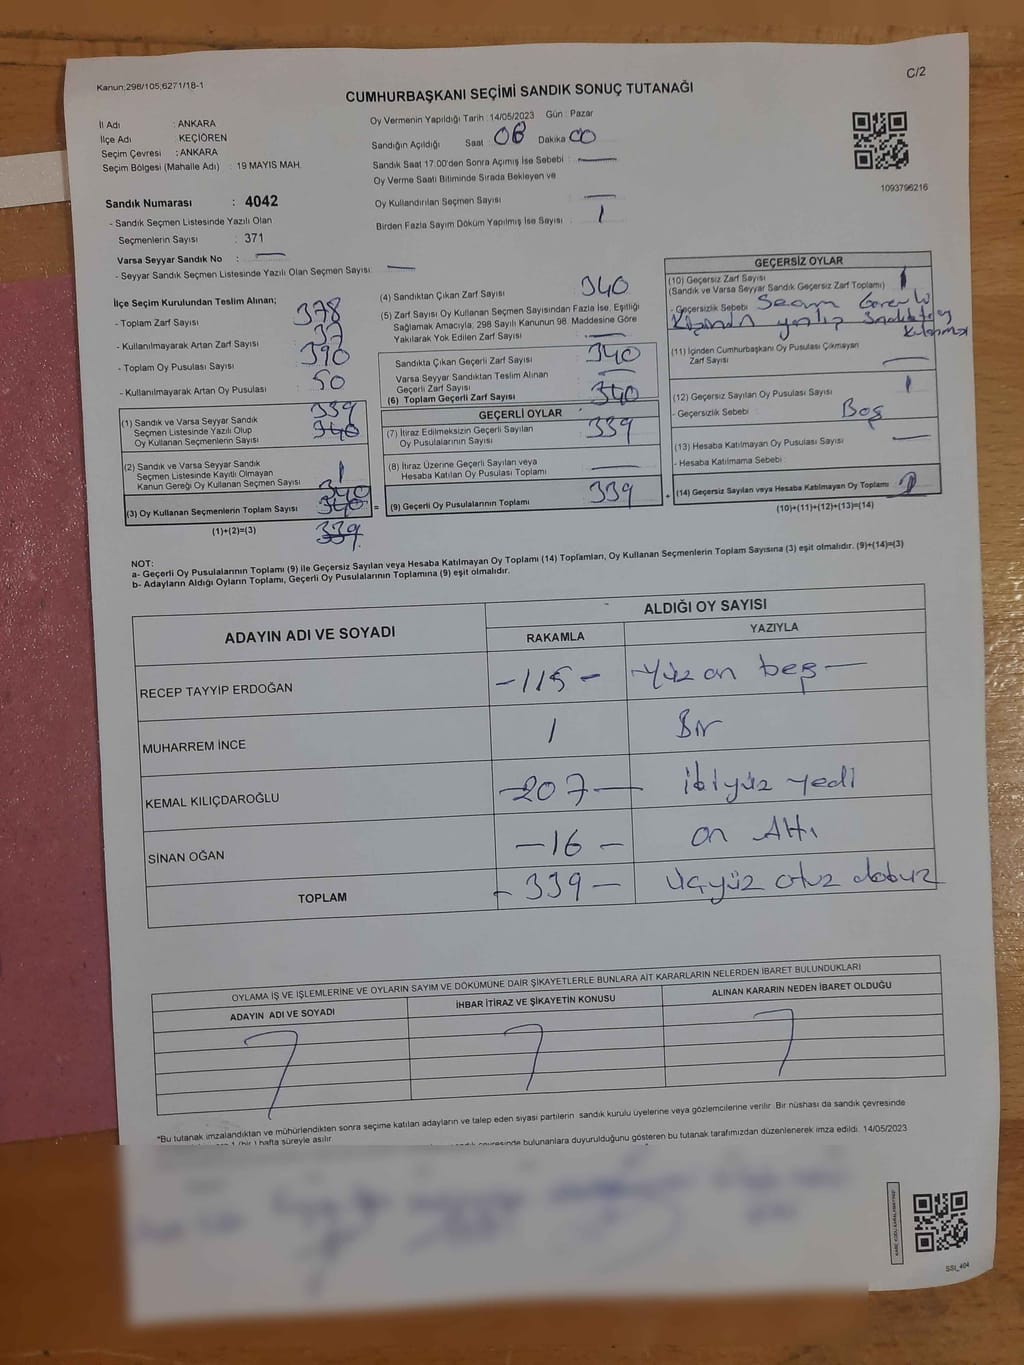 Kanun;298/105;6271/18-1
C/2
CUMHURBAŞKANI SEÇİMİ SANDIK SONUÇ TUTANAĞI
İl Adı : ANKARA
İlçe Adı : KEÇİÖREN
Seçim Çevresi : ANKARA
Seçim Bölgesi (Mahalle Adı) : 19 MAYIS MAH.
Oy Vermenin Yapıldığı Tarih :14/05/2023 Gün : Pazar
Sandığın Açıldığı Saat : 08 Dakika : 00
Sandık Saat 17.00'den Sonra Açımış İse Sebebi : —
Oy Verme Saati Bitiminde Sırada Bekleyen ve
Oy Kullandırılan Seçmen Sayısı : —
Birden Fazla Sayım Döküm Yapılmış İse Sayısı : 1
1093796216
Sandık Numarası : 4042
- Sandık Seçmen Listesinde Yazılı Olan
Seçmenlerin Sayısı : 371
Varsa Seyyar Sandık No : —
- Seyyar Sandık Seçmen Listesinde Yazılı Olan Seçmen Sayısı: —
İlçe Seçim Kurulundan Teslim Alınan;
- Toplam Zarf Sayısı 378
- Kullanılmayarak Artan Zarf Sayısı: 37
- Toplam Oy Pusulası Sayısı 390
- Kullanılmayarak Artan Oy Pusulası : 50
(1) Sandık ve Varsa Seyyar Sandık
Seçmen Listesinde Yazılı Olup
Oy Kullanan Seçmenlerin Sayısı
339
340
(2) Sandık ve Varsa Seyyar Sandık
Seçmen Listesinde Kayıtlı Olmayan
Kanun Gereği Oy Kullanan Seçmen Sayısı : 1
340
(3) Oy Kullanan Seçmenlerin Toplam Sayısı 340
(1)+(2)=(3) 339
(4) Sandıktan Çıkan Zarf Sayısı : 340
(5) Zarf Sayısı Oy Kullanan Seçmen Sayısından Fazla İse, Eşitliği
Sağlamak Amacıyla; 298 Sayılı Kanunun 98. Maddesine Göre
Yakılarak Yok Edilen Zarf Sayısı : —
Sandıkta Çıkan Geçerli Zarf Sayısı : 340
Varsa Seyyar Sandıktan Teslim Alınan
Geçerli Zarf Sayısı : —
(6) Toplam Geçerli Zarf Sayısı : 340
GEÇERLİ OYLAR
(7) İtiraz Edilmeksizin Geçerli Sayılan
Oy Pusulalarının Sayısı : 339
(8) İtiraz Üzerine Geçerli Sayılan veya
Hesaba Katılan Oy Pusulası Toplamı : —
= (9) Geçerli Oy Pusulalarının Toplamı : 339
GEÇERSİZ OYLAR
(10) Geçersiz Zarf Sayısı
(Sandık ve Varsa Seyyar Sandık Geçersiz Zarf Toplamı)
- Geçersizlik Sebebi :
(11) İçinden Cumhurbaşkanı Oy Pusulası Çıkmayan
Zarf Sayısı : —
(12) Geçersiz Sayılan Oy Pusulası Sayısı : 1
- Geçersizlik Sebebi : Boş
(13) Hesaba Katılmayan Oy Pusulası Sayısı : —
- Hesaba Katılmama Sebebi :
+ (14) Geçersiz Sayılan veya Hesaba Katılmayan Oy Toplamı :
(10)+(11)+(12)+(13)=(14)
NOT:
a- Geçerli Oy Pusulalarının Toplamı (9) ile Geçersiz Sayılan veya Hesaba Katılmayan Oy Toplamı (14) Toplamları, Oy Kullanan Seçmenlerin Toplam Sayısına (3) eşit olmalıdır. (9)+(14)=(3)
b- Adayların Aldığı Oyların Toplamı, Geçerli Oy Pusulalarının Toplamına (9) eşit olmalıdır.
ADAYIN ADI VE SOYADI
ALDIĞI OY SAYISI
RAKAMLA YAZIYLA
RECEP TAYYİP ERDOĞAN -115- Yüz on beş —
MUHARREM İNCE 1 Bir
KEMAL KILIÇDAROĞLU -207- ikiyüz yedi
SİNAN OĞAN -16- on Altı
TOPLAM -339- üçyüz otuz dokuz
OYLAMA İŞ VE İŞLEMLERİNE VE OYLARIN SAYIM VE DÖKÜMÜNE DAİR ŞİKAYETLERLE BUNLARA AİT KARARLARIN NELERDEN İBARET BULUNDUKLARI
ADAYIN ADI VE SOYADI İHBAR İTİRAZ VE ŞİKAYETİN KONUSU ALINAN KARARIN NEDEN İBARET OLDUĞU
*Bu tutanak imzalandıktan ve mühürlendikten sonra seçime katılan adayların ve talep eden siyasi partilerin sandık kurulu üyelerine veya gözlemcilerine verilir. Bir nüshası da sandık çevresinde
(bir) hafta süreyle asılır.
bulunanlara duyurulduğunu gösteren bu tutanak tarafımızdan düzenlenerek imza edildi. 14/05/2023
SSI_404